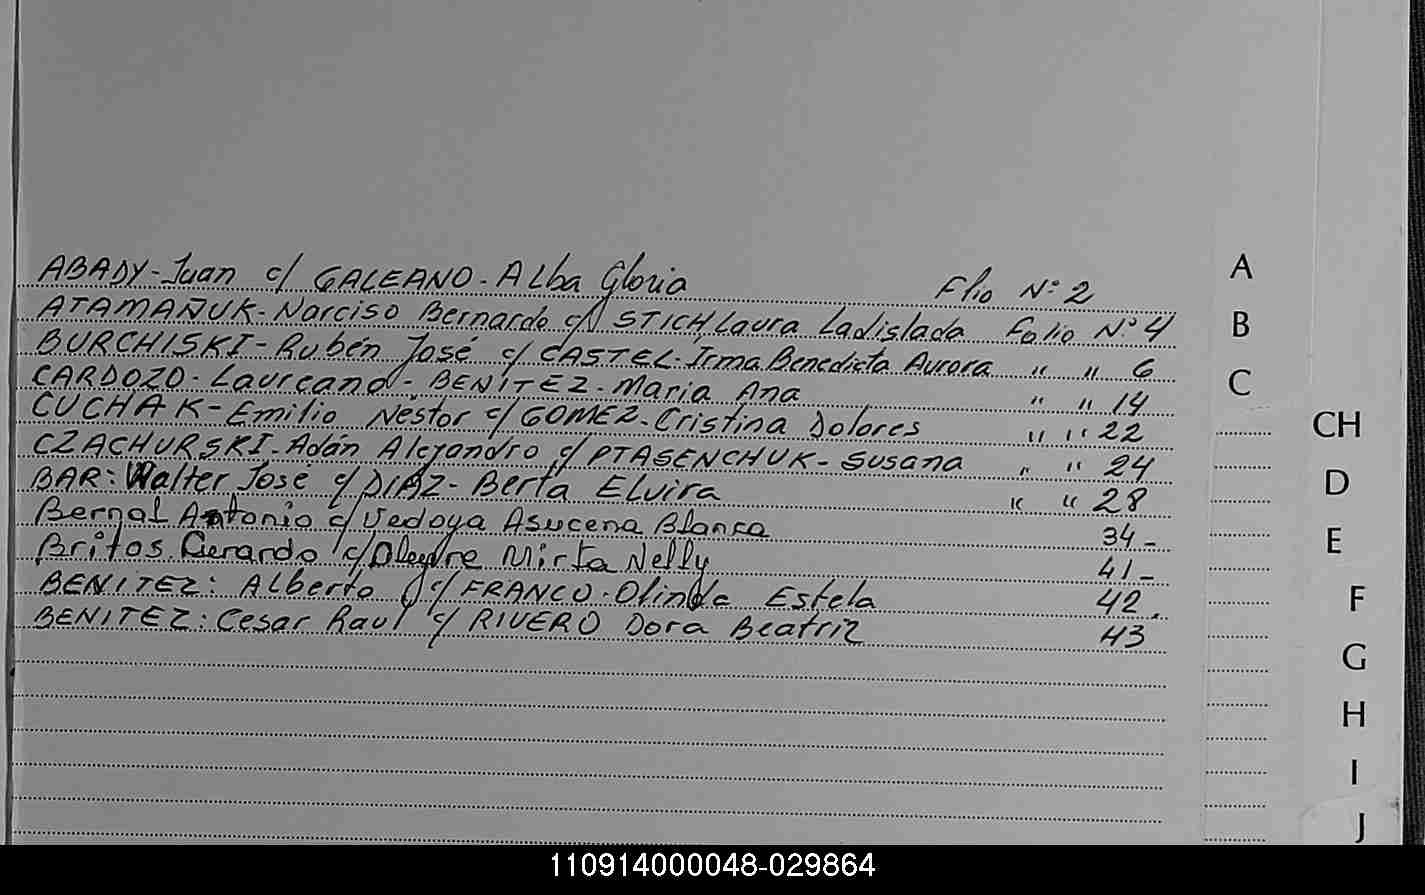 ABADY-Juan c/ GALEANO-Alba Gloria Flio N: 2
ATAMAÑUK-Narciso Bernardo c/ STICH Laura Ladislada Folio N: 4
BURCHISKI-Rubén José c/ CASTEL-Irma Benedicta Aurora " " 6
CARDOZO-Laureano-BENITEZ-Maria Ana " " 14
CUCHAK-Emilio Néstor c/ GOMEZ-Cristina Dolores " " 22
CZACHURSKI-Adán Alejandro c/ PTASENCHUK-Susana " " 24
BAR: Walter José c/ DIAZ-Berta Elvira " " 28
Bernal Antonio c/ Vedoya Asucena Blanca 34-
Britos Gerardo c/ Mirta Nelly 41-
BENITEZ: Alberto c/ FRANCO-Olinda Estela 42.
BENITEZ: Cesar Raul c/ RIVERO Dora Beatriz 43
A
B
C
CH
D
E
F
G
H
I
J
110914000048-029864